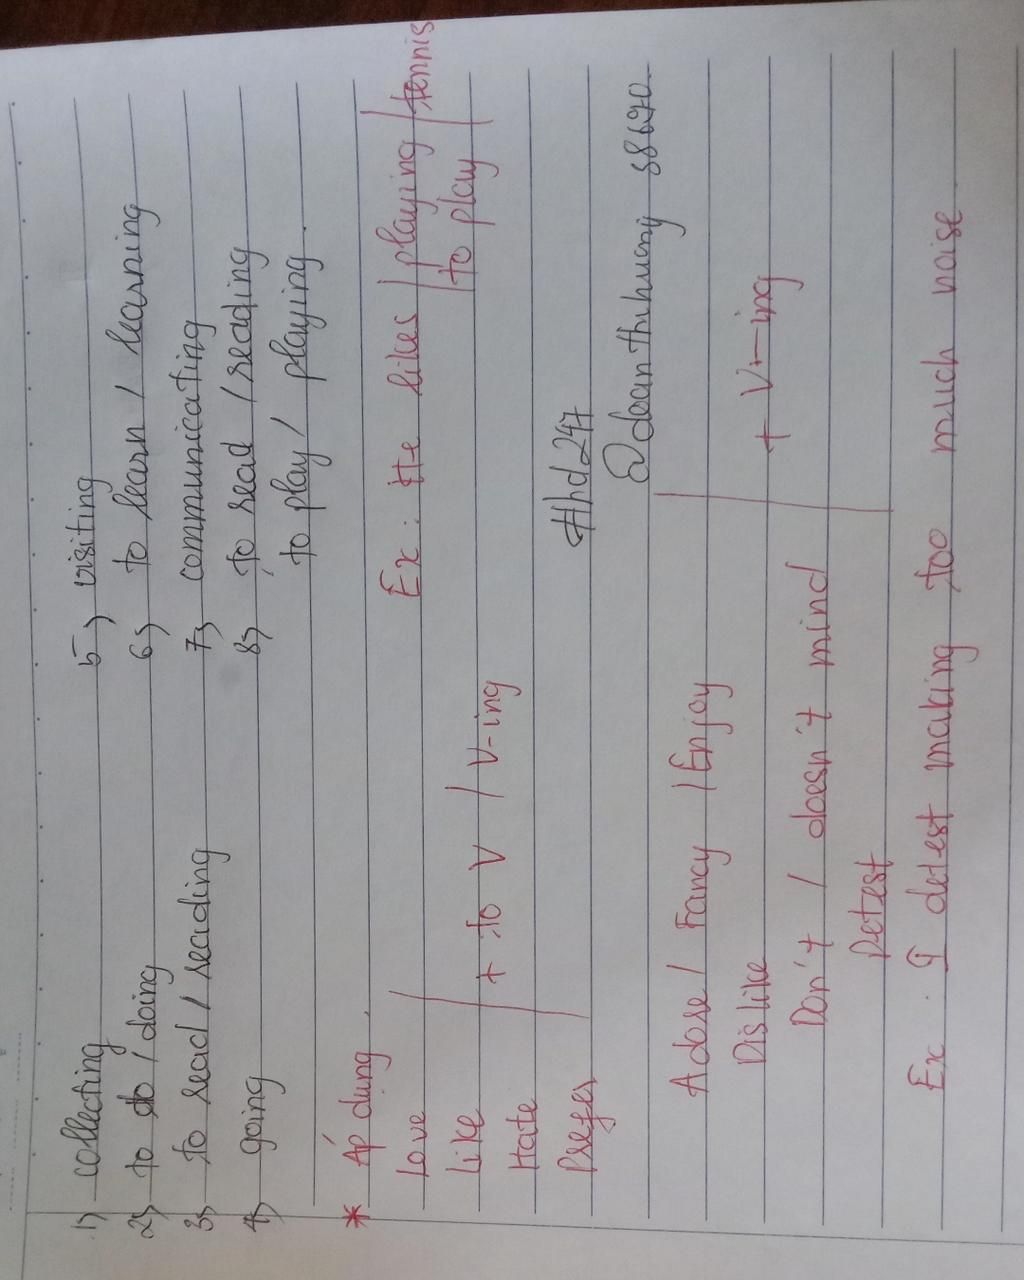 1) collecting
2) to do / doing
3) to read / reading
4) going
5) visiting
6) to learn / learning
7) communicating
8) to read / reading
to play / playing.
* Áp dụng.
Love
Like + to V / V-ing
Hate
Prefer
Ex: He likes / playing / tennis
/ to play /
#hd247
@doanthihuong88690.
Adore / Fancy / Enjoy
Dislike + V-ing
Don't / doesn't mind
Detest
Ex: I detest making too much noise.